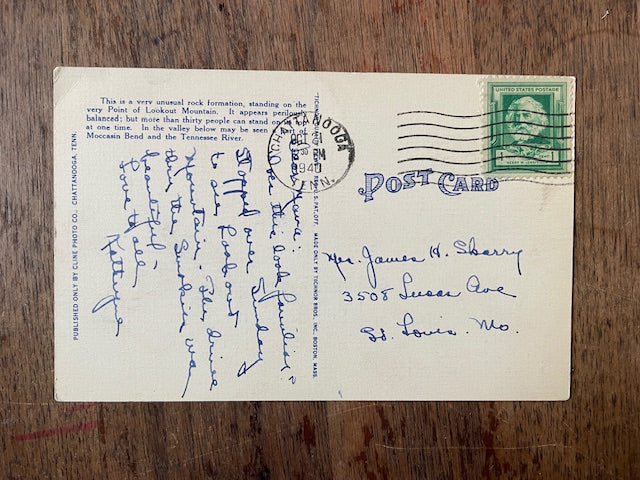 This is a very unusual rock formation, standing on the
very Point of Lookout Mountain. It appears perilously
balanced; but more than thirty people can stand on it
at one time. In the valley below may be seen a part of
Moccasin Bend and the Tennessee River.
PUBLISHED ONLY BY CLINE PHOTO CO., CHATTANOOGA, TENN.
Does this look familiar?
Stopped over Sunday
to see Lookout
Mountain. The drive
thru the Smokies was
beautiful.
Love to all
Kathryne
QUALITY REG. U.S. PAT. OFF. MADE ONLY BY TICHNOR BROS., INC., BOSTON, MASS.
CHATTANOOGA
OCT 21
30 PM
1940
TENN.
UNITED STATES POSTAGE
1
POST CARD
Mrs. James H. Skarry
3508 Lucas Ave
St. Louis. Mo.